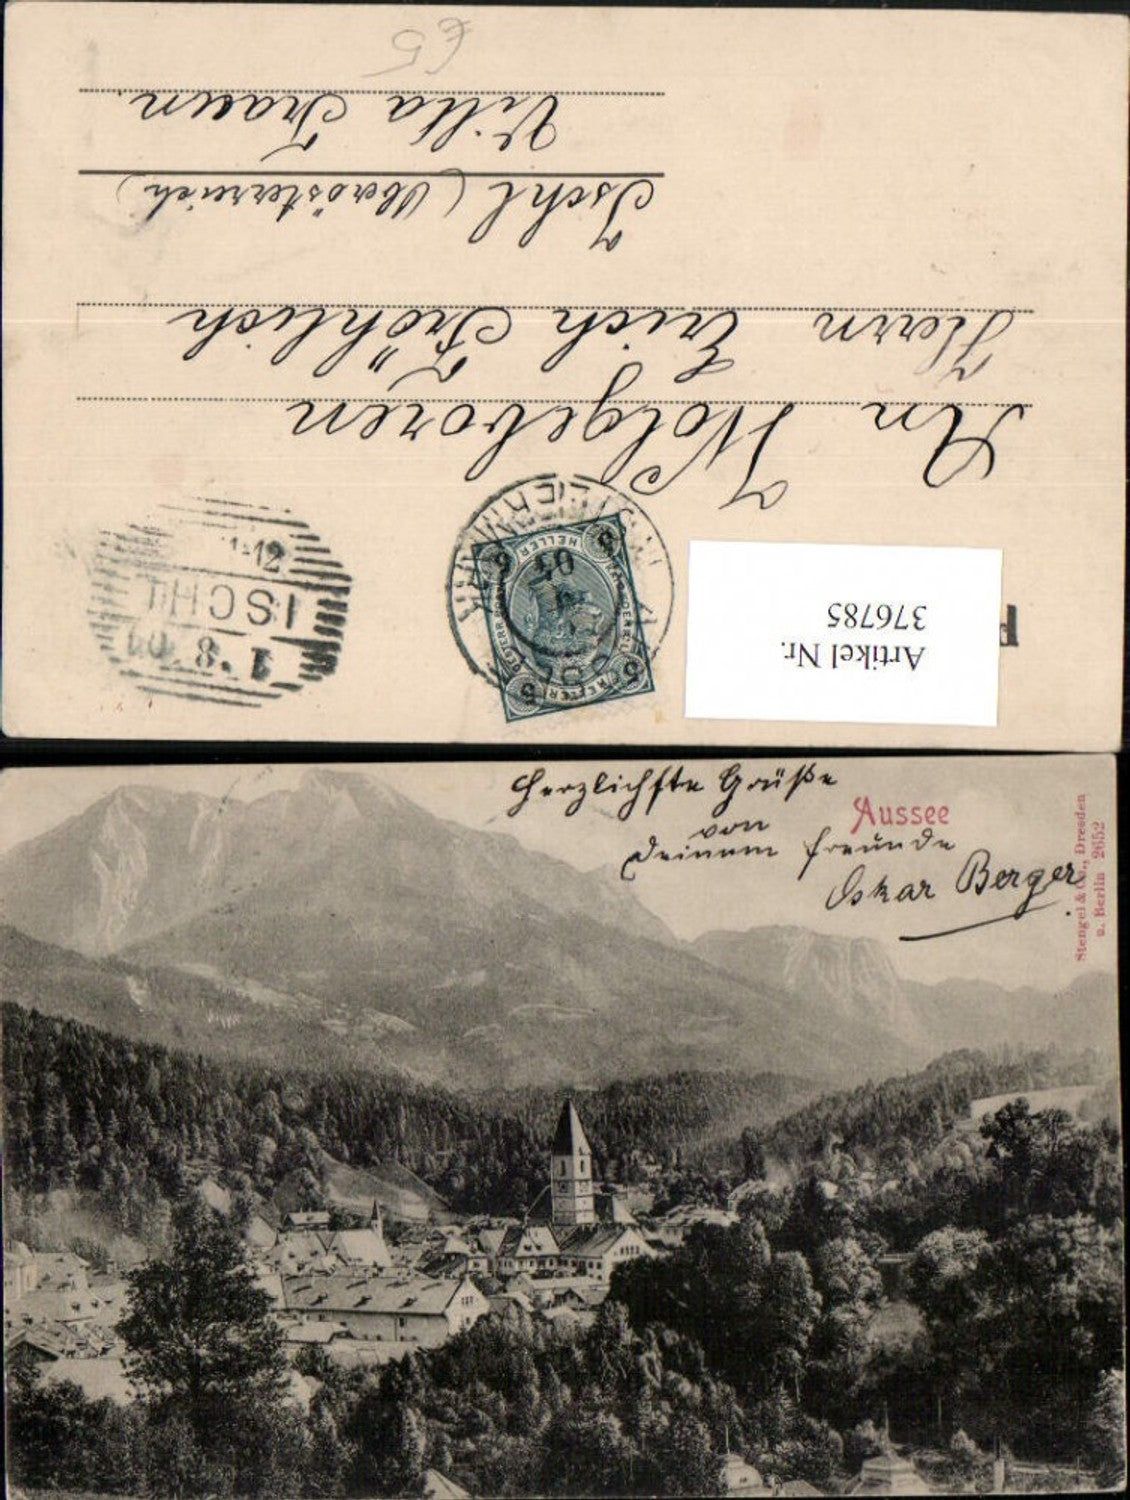 An Wolgeboren
Herrn Erich Fröhlich
Ischl (Oberösterreich)
Villa Traun.
£5
Artikel Nr.
376785
5 5
HELLER
5 5
ISCHL
1·8
Herzlichste Grüße
von
Deinem Freunde
Oskar Berger
Aussee
Stengel & Co., Dresden
u. Berlin 2652